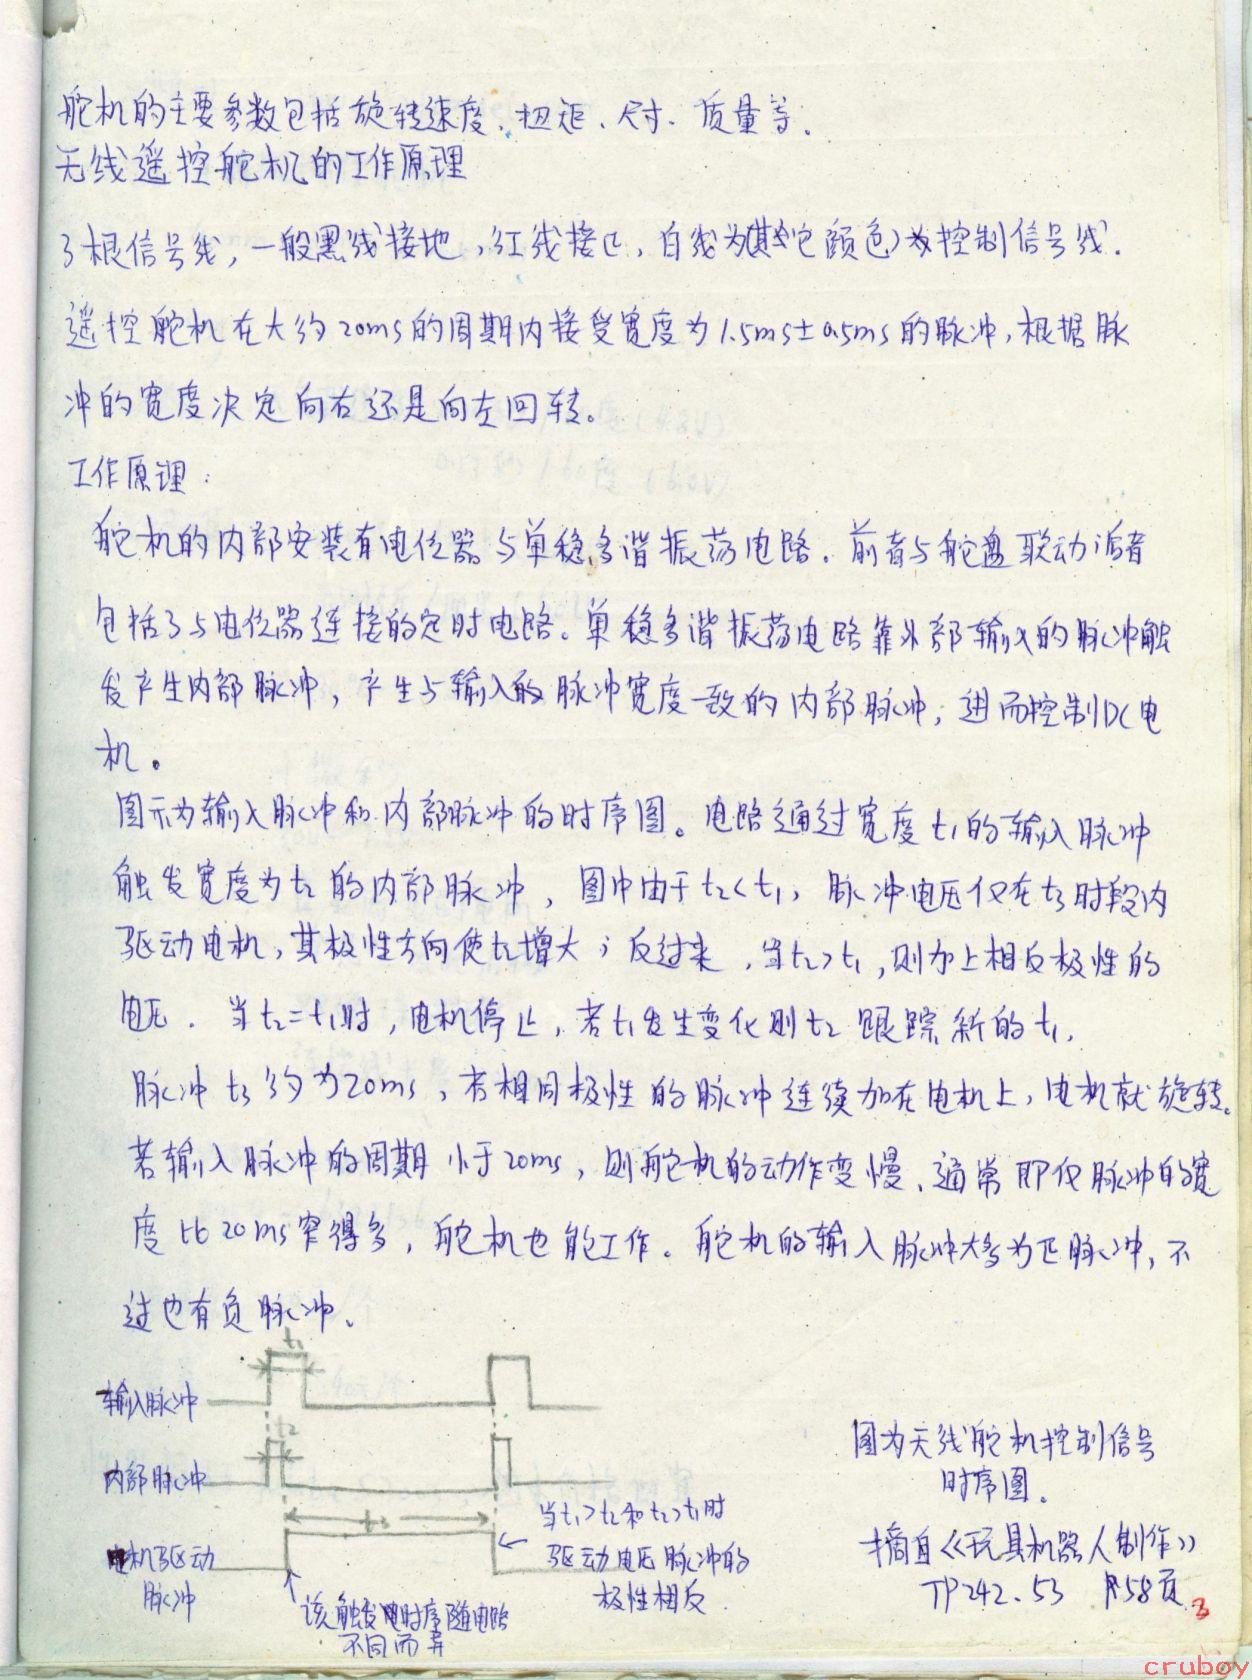 舵机的主要参数包括旋转速度、扭矩、尺寸、质量等.
无线遥控舵机的工作原理
3根信号线,一般黑线接地,红线接正,白线为(其它颜色)为控制信号线.
遥控舵机在大约20ms的周期内接受宽度为1.5ms±0.5ms的脉冲,根据脉
冲的宽度决定向右还是向左回转。
工作原理:
舵机的内部安装有电位器与单稳多谐振荡电路.前者与舵盘联动后者
包括了与电位器连接的定时电路。单稳多谐振荡电路靠外部输入的脉冲触
发产生内部脉冲,产生与输入的脉冲宽度一致的内部脉冲,进而控制DC电
机。
图示为输入脉冲和内部脉冲的时序图。电路通过宽度t1的输入脉冲
触发宽度为t2的内部脉冲,图中由于t2<t1,脉冲电压仅在t3时段内
驱动电机,其极性方向使t2增大;反过来,当t2>t1,则加上相反极性的
电压.当t2=t1时,电机停止,若t1发生变化则t2跟踪新的t1.
脉冲t3约为20ms,若相同极性的脉冲连续加在电机上,电机就旋转。
若输入脉冲的周期小于20ms,则舵机的动作变慢、通常即使脉冲的宽
度比20ms窄得多,舵机也能工作.舵机的输入脉冲大多为正脉冲,不
过也有负脉冲.
t1
输入脉冲
t2
内部脉冲
t3
电机驱动
脉冲
该触发时序随电路
不同而异
当t1>t2和t2>t1时
驱动电压脉冲的
极性相反
图为无线舵机控制信号
时序图。
摘自《玩具机器人制作》
TP242.53 P58页
3
cruboy